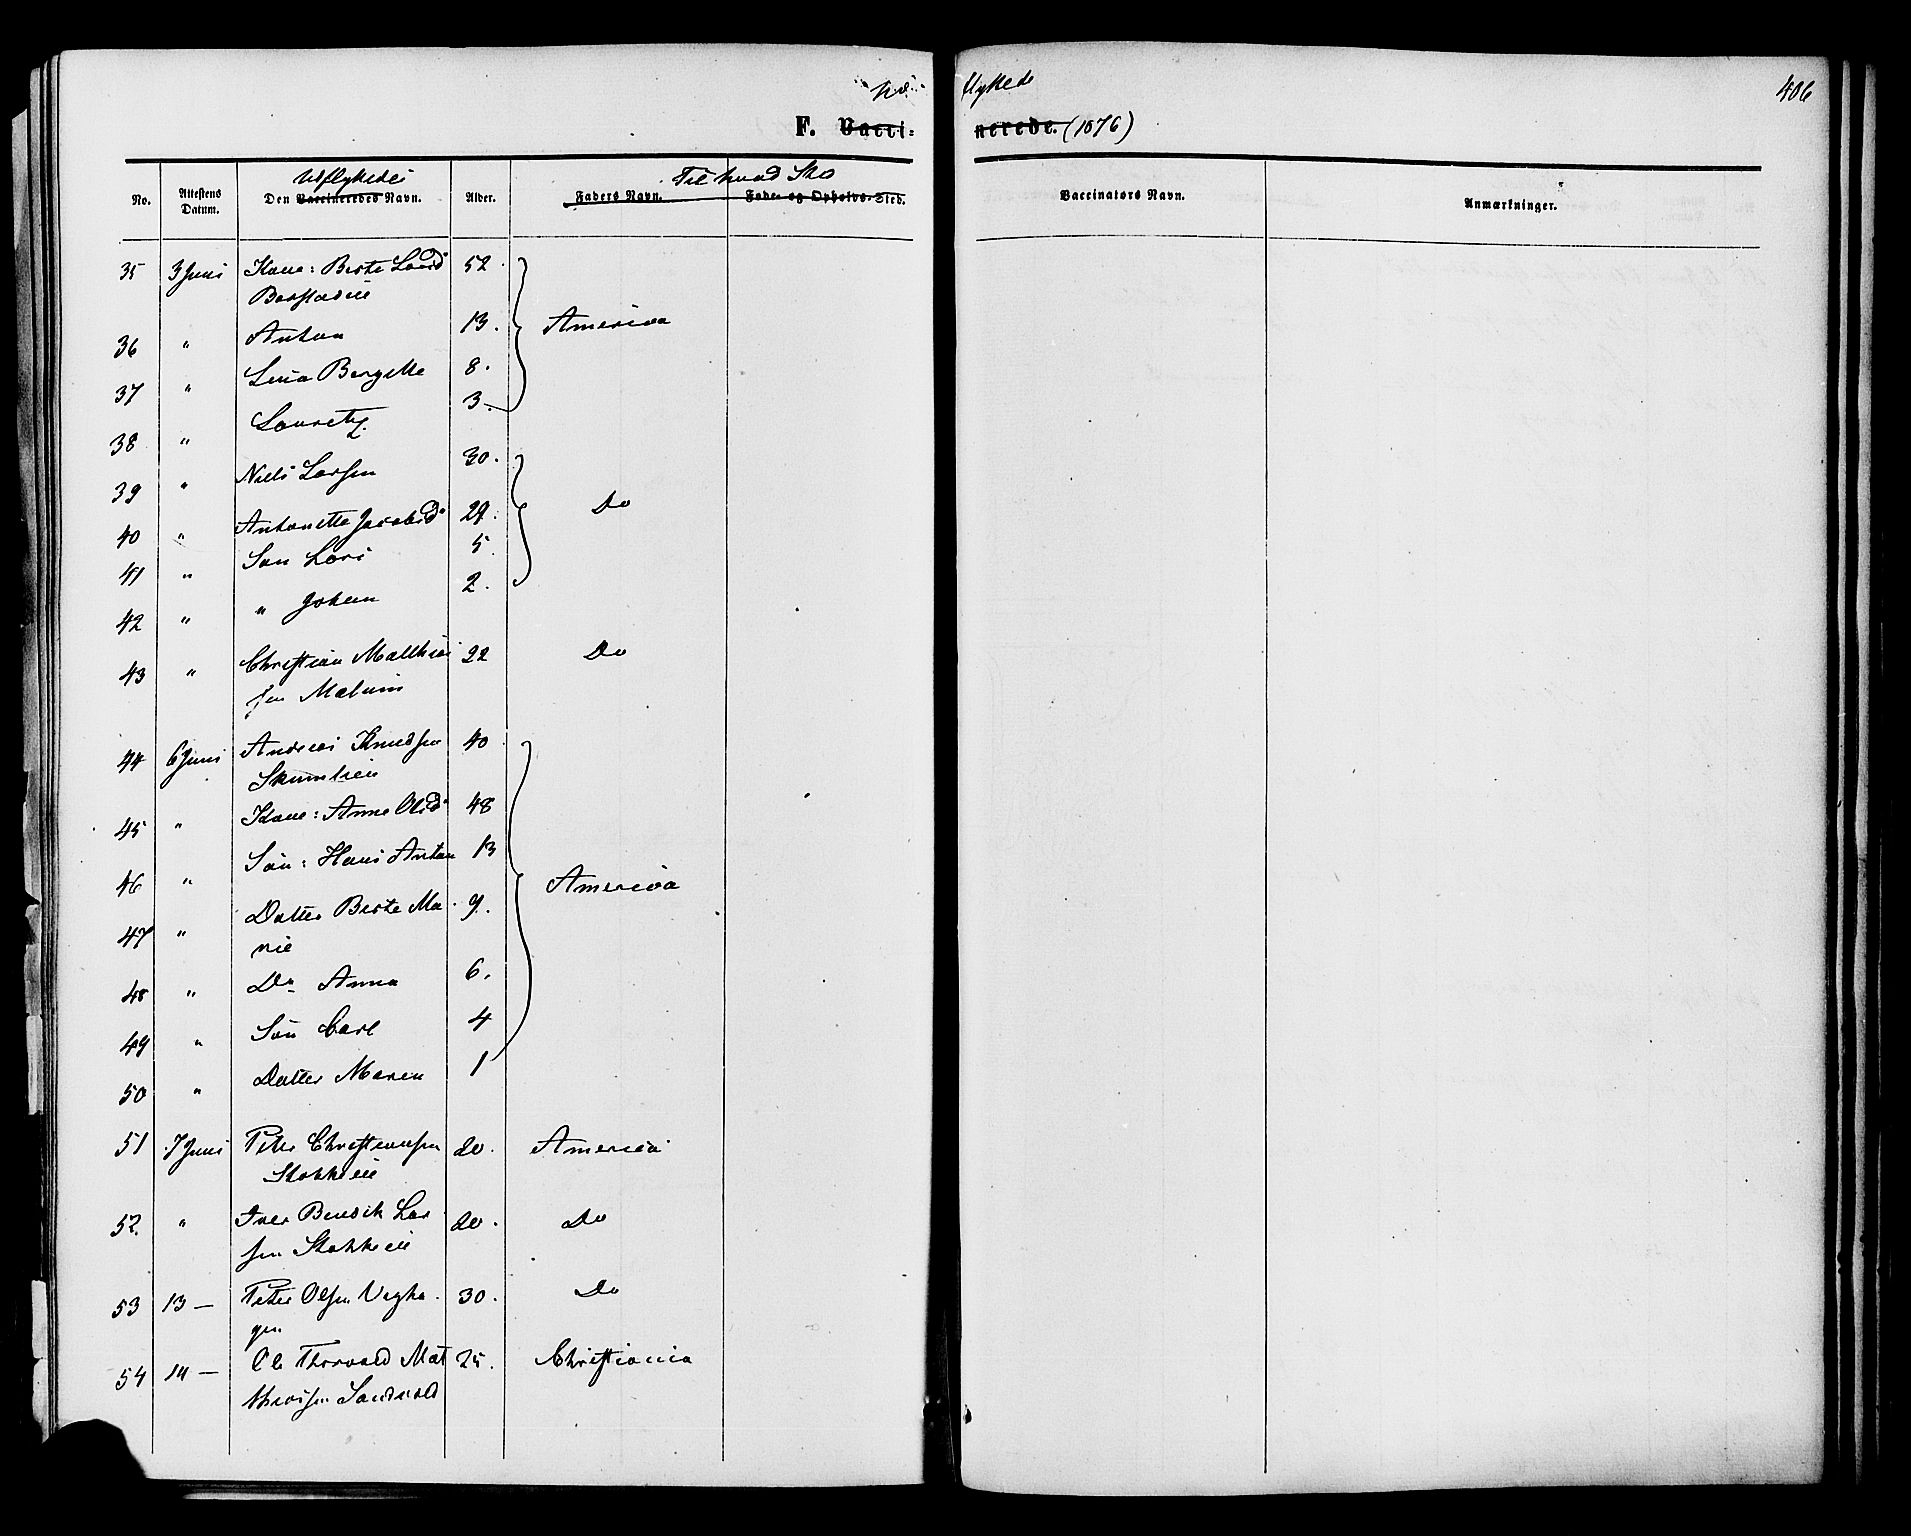 Ud flyttede 406
F. Vaccinerede. (1876)
No. Attestens Datum. Den Udflyttedes Vaccineredes Navn. Alder. Til hvad Sted Faders Navn. Føde- og Opholds-Sted. Vaccinators Navn. Anmærkninger.
35 3 Juni Kone: Berte Larsd 52
Borstadeie
36 " Anton 13. America
37 " Lena Bergitte 8.
38 " Lauretz. 3.
39 " Niels Larsen 30.
40 " Antonette Jacobsd 29. Do
41 " Søn Lars 5.
42 " " Johan 2.
43 " Christian Matthias 22 Do
sen Mælum
44 6 Juni Andreas Knudsen 40
Skumlien
45 " Kone: Anne Olsd 48
46 " Søn: Hans Anton 13 America
47 " Datter Berte Ma 9.
rie
48 " Do Anna 6.
49 " Søn Carl 4
50 " Datter Maren 1
51 7 Juni Peter Christiansen 20. America
Stokkeeie
52. " Iver Bendik Lar 20. Do
sen Stokkeeie
53 13 — Peter Olsen Vegha 30. Do
gen
54 14 — Ole Thorvald Mat 25. Christiania
thiassen Sandvold